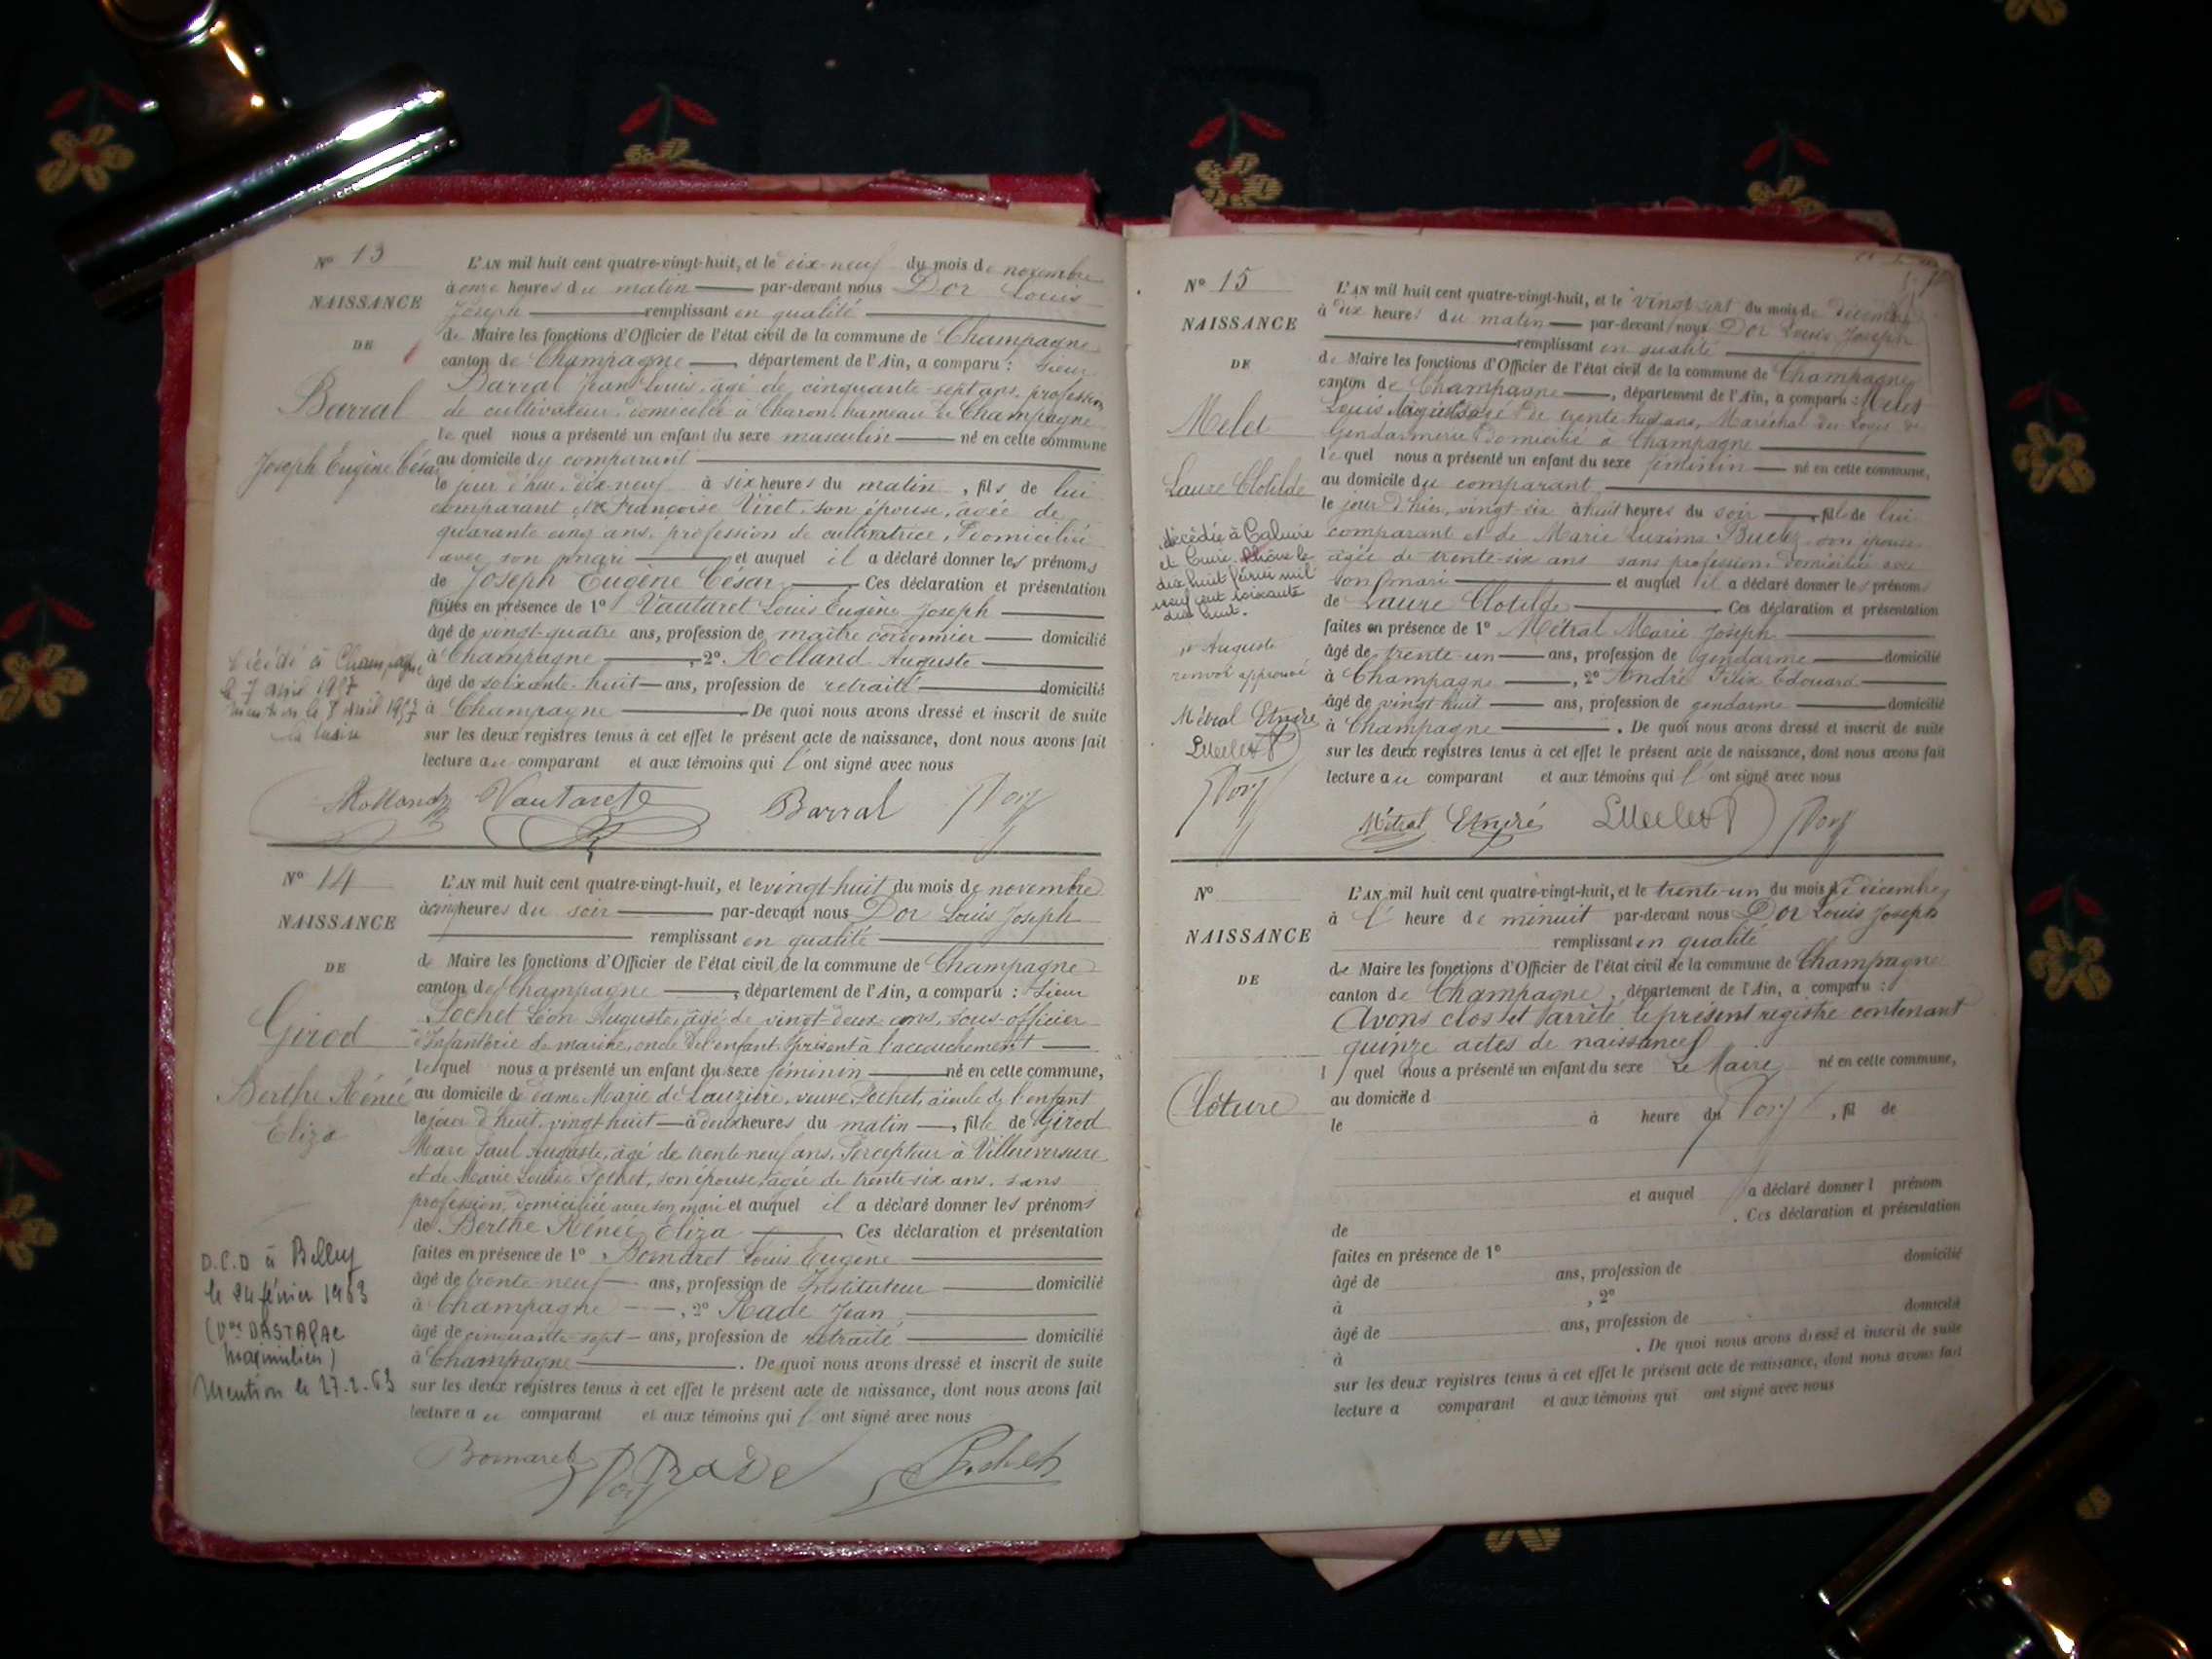 N° 13
NAISSANCE
DE
Barral
Joseph Eugène César
L'AN mil huit cent quatre-vingt-huit, et le dix-neuf du mois de novembre
à onze heures du matin par-devant nous Dor Louis
Joseph remplissant en qualité
de Maire les fonctions d'Officier de l'état civil de la commune de Champagne
canton de Champagne, département de l'Ain, a comparu : Sieur
Barral Jean Louis, âgé de cinquante-sept ans, profession
de cultivateur, domicilié à Charon, hameau de Champagne
lequel nous a présenté un enfant du sexe masculin né en cette commune
au domicile du comparant
le jour d'hui, dix-neuf à six heures du matin, fils de lui
comparant et de Françoise Viret, son épouse, âgée de
quarante cinq ans, profession de cultivatrice, domiciliée
avec son mari et auquel il a déclaré donner les prénoms
de Joseph Eugène César Ces déclaration et présentation
faites en présence de 1° Vautaret Louis Eugène Joseph
âgé de vingt-quatre ans, profession de maître cordonnier domicilié
à Champagne, 2° Rolland Auguste
âgé de soixante-huit ans, profession de retraité domicilié
à Champagne De quoi nous avons dressé et inscrit de suite
sur les deux registres tenus à cet effet le présent acte de naissance, dont nous avons fait
lecture au comparant et aux témoins qui l'ont signé avec nous
Décédé à Champagne
le 7 avril 1957
mention le 8 avril 1957
Rolland Vautaret Barral Dor
N° 14
NAISSANCE
DE
Girod
Berthe Rénée
Eliza
L'AN mil huit cent quatre-vingt-huit, et le vingt-huit du mois de novembre
à cinq heures du soir par-devant nous Dor Louis Joseph
remplissant en qualité
de Maire les fonctions d'Officier de l'état civil de la commune de Champagne
canton de Champagne, département de l'Ain, a comparu : Sieur
Pochet Léon Auguste, âgé de vingt-deux ans, sous-officier
d'Infanterie de marine, oncle de l'enfant, présent à l'accouchement
lequel nous a présenté un enfant du sexe féminin né en cette commune,
au domicile de dame Marie de Lauzière, veuve Pochet, aïeule de l'enfant
le jour d'huit, vingt-huit à deux heures du matin, fille de Girod
Marc Paul Auguste, âgé de trente neuf ans, Percepteur à Villereversure
et de Marie Louise Pochet, son épouse, âgée de trente six ans, sans
profession, domiciliée avec son mari et auquel il a déclaré donner les prénoms
de Berthe Rénée Eliza Ces déclaration et présentation
faites en présence de 1° Bomaret Louis Eugène
âgé de trente-neuf ans, profession de Instituteur domicilié
à Champagne, 2° Rade Jean,
âgé de cinquante-sept ans, profession de retraité domicilié
à Champagne. De quoi nous avons dressé et inscrit de suite
sur les deux registres tenus à cet effet le présent acte de naissance, dont nous avons fait
lecture au comparant et aux témoins qui l'ont signé avec nous
D.C.D à Belley
le 24 février 1963
(Vve DASTARAC
Maximilien)
Mention le 27.2.63
Bomaret Dor Rade Pochet
N° 15
NAISSANCE
DE
Melet
Laure Clotilde
L'AN mil huit cent quatre-vingt-huit, et le vingt sept du mois de décembre
à dix heures du matin par-devant nous Dor Louis Joseph
remplissant en qualité
de Maire les fonctions d'Officier de l'état civil de la commune de Champagne
canton de Champagne, département de l'Ain, a comparu : Melet
Louis âgé de trente huit ans, Maréchal des Logis de
Gendarmerie domicilié à Champagne
lequel nous a présenté un enfant du sexe féminin né en cette commune,
au domicile du comparant
le jour d'hier, vingt-six à huit heures du soir, fille de lui
comparant et de Marie Luxima Buchz son épouse
âgée de trente-six ans sans profession, domiciliée avec
son mari et auquel il a déclaré donner les prénoms
de Laure Clotilde Ces déclaration et présentation
faites en présence de 1° Métral Marie Joseph
âgé de trente un ans, profession de gendarme domicilié
à Champagne, 2° André Félix Edouard
âgé de vingt huit ans, profession de gendarme domicilié
à Champagne. De quoi nous avons dressé et inscrit de suite
sur les deux registres tenus à cet effet le présent acte de naissance, dont nous avons fait
lecture au comparant et aux témoins qui l'ont signé avec nous
décédée à Caluire
et Cuire Rhône le
dix huit février mil
neuf cent soixante
dix huit.
Auguste
renvoi approuvé
Métral André
LMelet
Dor
Métral André LMelet Dor
N°
NAISSANCE
DE
Clôture
L'AN mil huit cent quatre-vingt-huit, et le trente-un du mois de décembre
à l'heure de minuit par-devant nous Dor Louis Joseph
remplissant en qualité
de Maire les fonctions d'Officier de l'état civil de la commune de Champagne
canton de Champagne, département de l'Ain, a comparu :
Avons clos et arrêté le présent registre contenant
quinze actes de naissances
l quel nous a présenté un enfant du sexe Le Maire né en cette commune,
au domicile d
le à heure du Dor, fil de
et auquel a déclaré donner l prénom
de . Ces déclaration et présentation
faites en présence de 1°
âgé de ans, profession de domicilié
à , 2°
âgé de ans, profession de domicilié
à . De quoi nous avons dressé et inscrit de suite
sur les deux registres tenus à cet effet le présent acte de naissance, dont nous avons fait
lecture a comparant et aux témoins qui ont signé avec nous